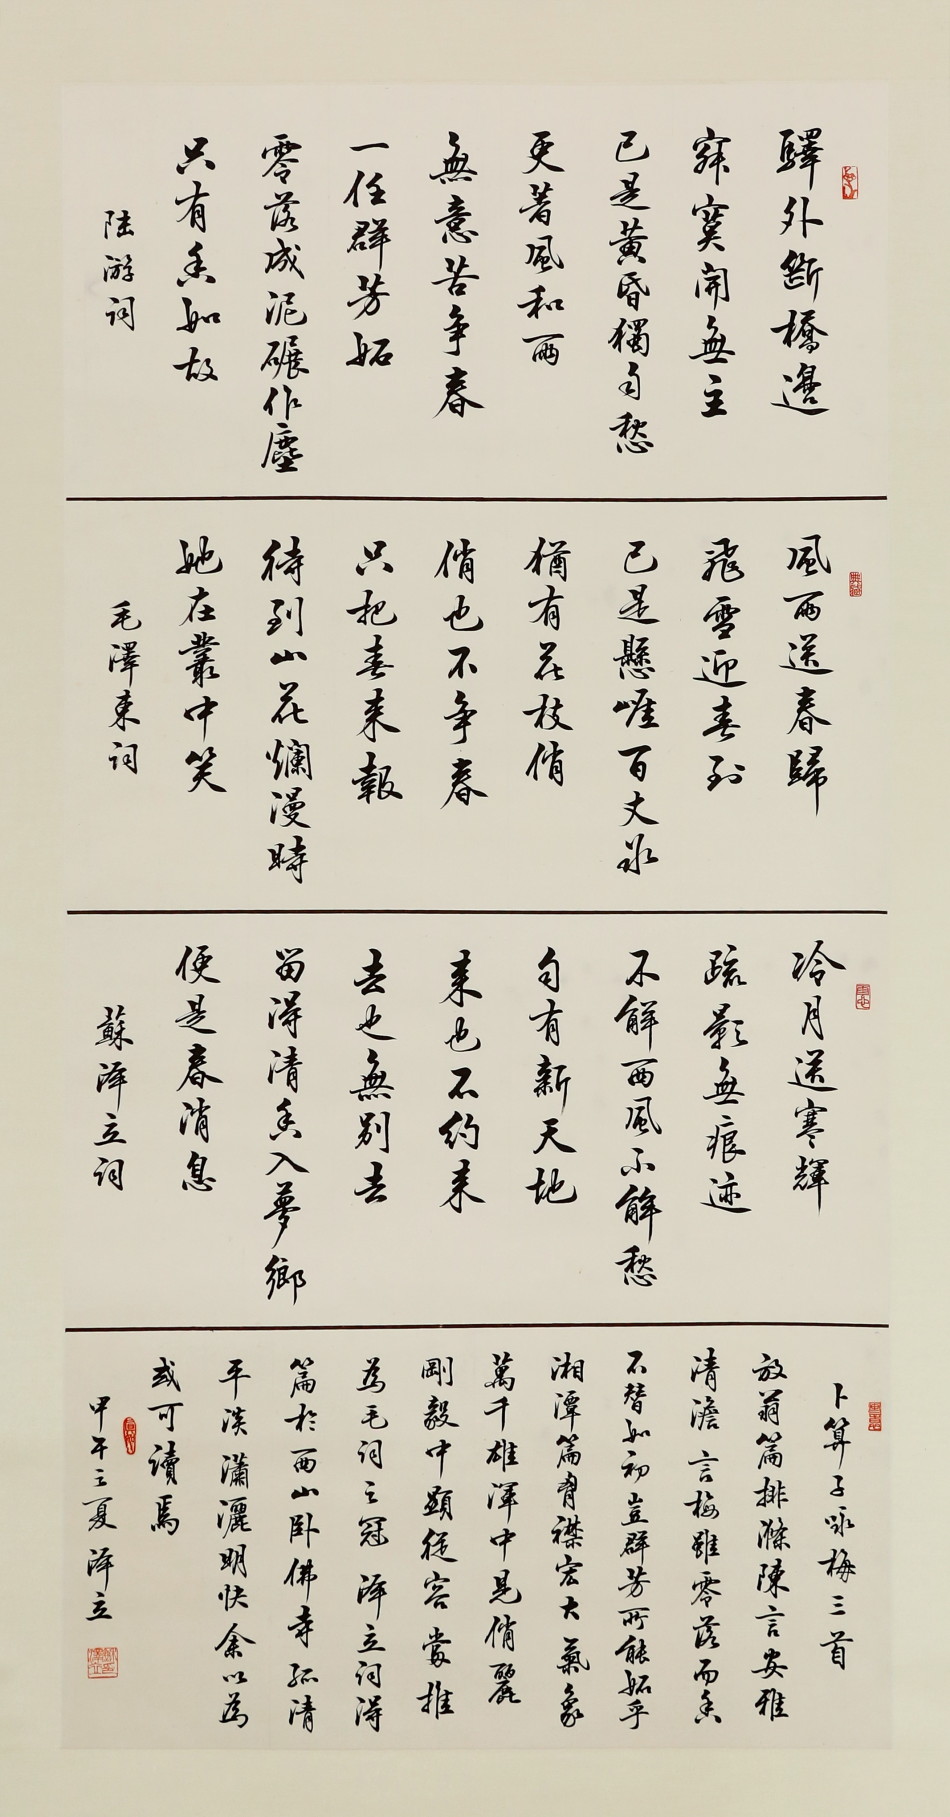 驛外斷橋邊
寂寞開無主
已是黃昏獨自愁
更著風和雨
無意苦爭春
一任群芳妬
零落成泥碾作塵
只有香如故
陸游詞
風雨送春歸
飛雪迎春到
已是懸崖百丈冰
猶有花枝俏
俏也不爭春
只把春來報
待到山花爛漫時
她在叢中笑
毛澤東詞
冷月送寒輝
疏影無痕迹
不解西風不解愁
自有新天地
來也不約來
去也無別去
留得清香入夢鄉
便是春消息
蘇澤立詞
卜算子咏梅三首
放翁篇排滌陳言安雅
清澹言梅雖零落而香
不替如初豈群芳所能妬乎
湘潭篇胷襟宏大氣象
萬千雄渾中見俏麗
剛毅中顯從容當推
為毛詞之冠澤立詞得
篇於西山卧佛寺孤清
平淡瀟灑明快余以為
或可讀焉
甲午之夏澤立